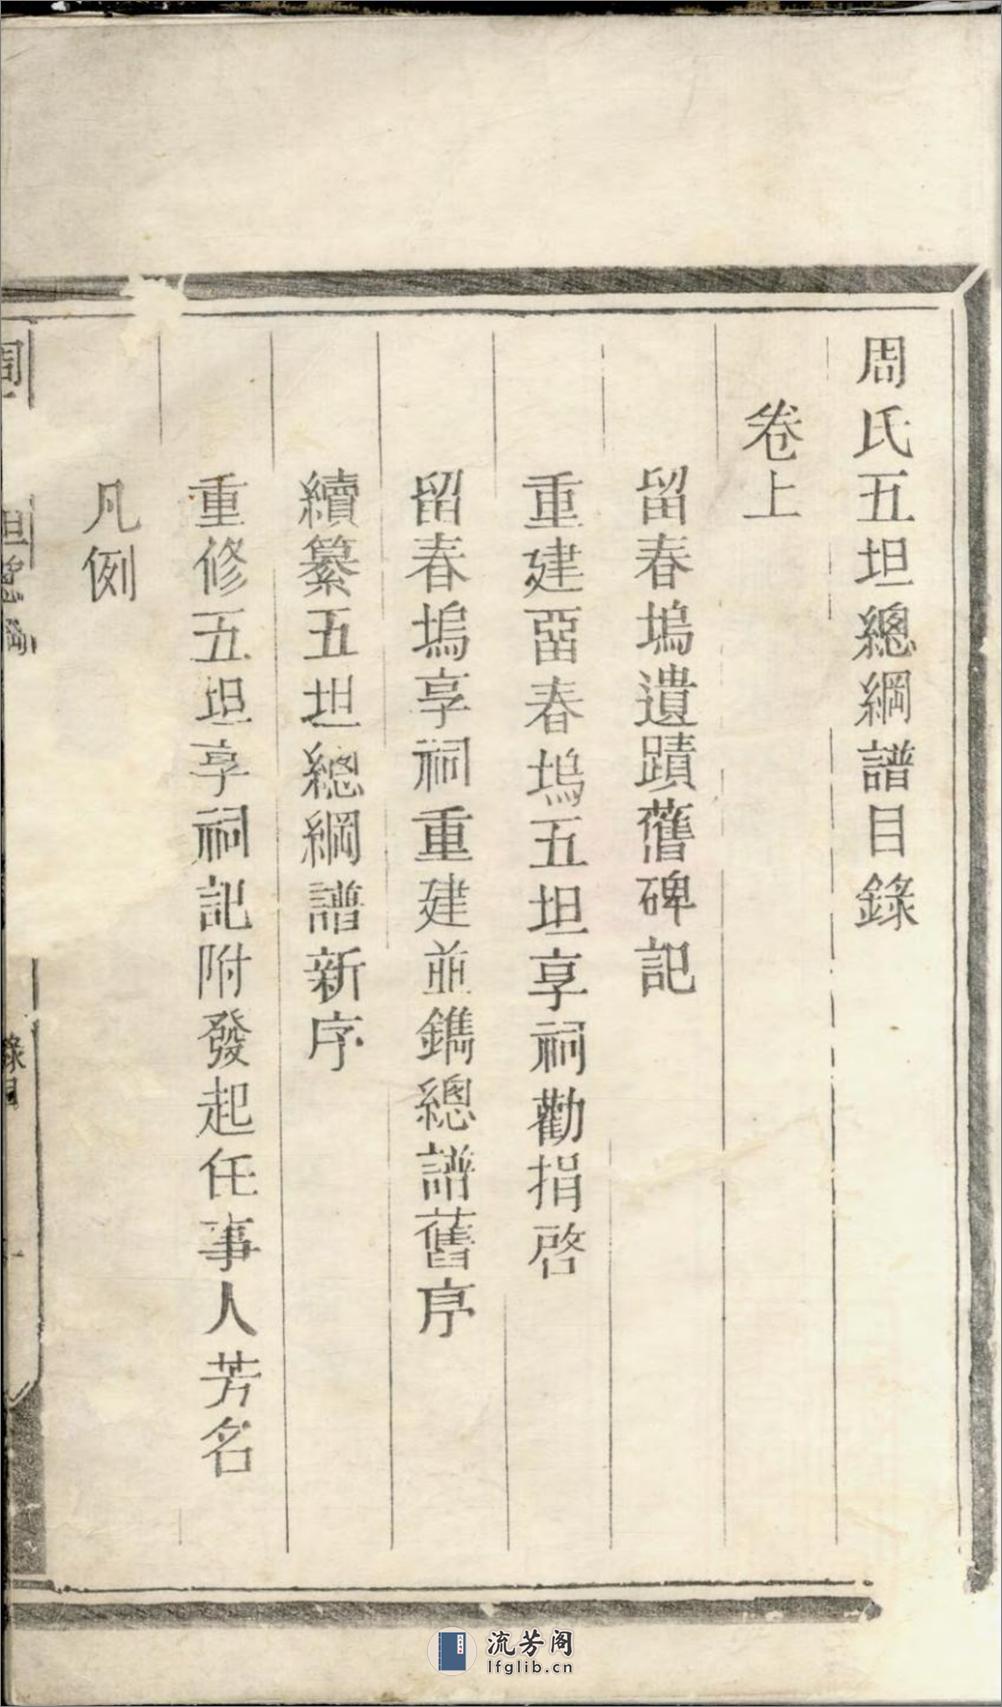 周氏五坦總綱譜目錄
卷上
留春塢遺蹟舊碑記
重建畱春塢五坦享祠勸捐啓
留春塢享祠重建並鐫總譜舊序
續纂五坦總綱譜新序
重修五坦享祠記附發起任事人芳名
凡例
流芳阁
lfglib.cn